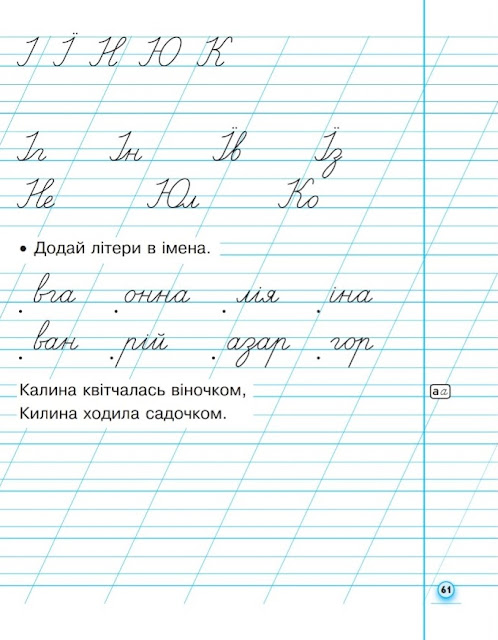 І Ї Н Ю К
Іг Ін Їв Їз
Не Юл Ко
• Додай літери в імена.
. вга . онна . лія . іна
. ван . рій . азар . гор
Калина квітчалась віночком,
Килина ходила садочком.
а а
61